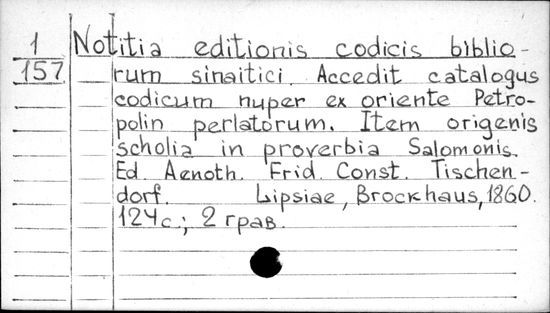 1 Notitia editionis codicis biblio-
157 rum sinaitici. Accedit catalogus
codicum nuper ex oriente Petro-
polin perlatorum. Item origenis
scholia in proverbia Salomonis.
Ed. Aenoth. Frid. Const. Tischen-
dorf. Lipsiae, Brockhaus, 1860.
124 с.; 2 грав.